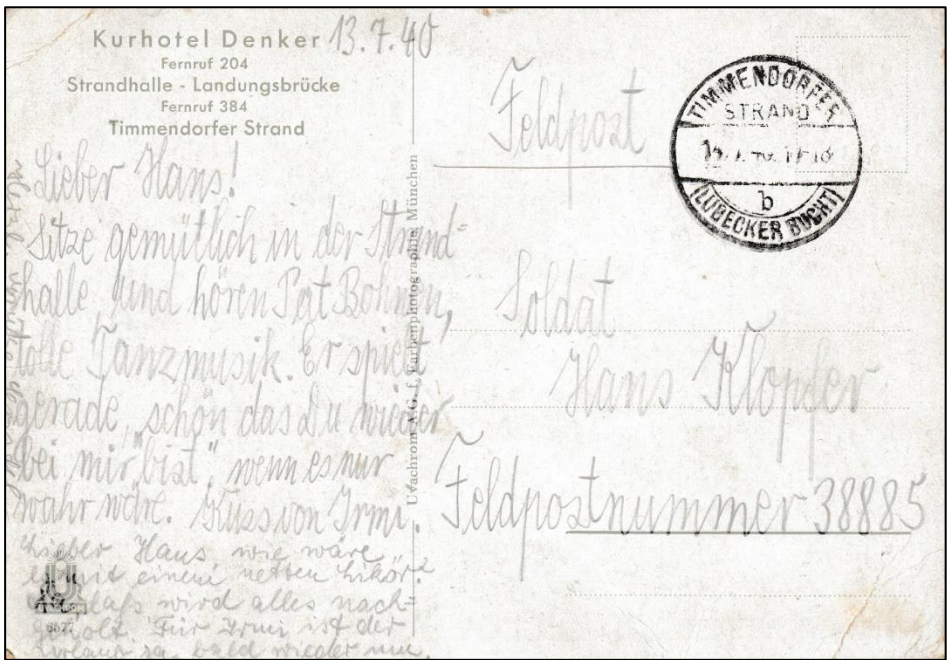 Kurhotel Denker 13.7.40
Fernruf 204
Strandhalle - Landungsbrücke
Fernruf 384
Timmendorfer Strand
Lieber Hans!
Sitze gemütlich in der Strand=
halle und hören Pat Bohnen,
tolle Tanzmusik. Er spielt
gerade „schön das Du wieder
bei mir bist", wenn es nur
wahr wäre. Kuss von Irmi.
Lieber Hans, wie wäre
es mit einem netten Likör?
wird alles nach-
geholt. Für Irmi ist der
Urlaub ja bald wieder um.
6622
Uvachrom A.G. f. Farbenphotographie München
Feldpost
TIMMENDORFER
STRAND
b
(LÜBECKER BUCHT)
Soldat
Hans Klopfer
Feldpostnummer 38885